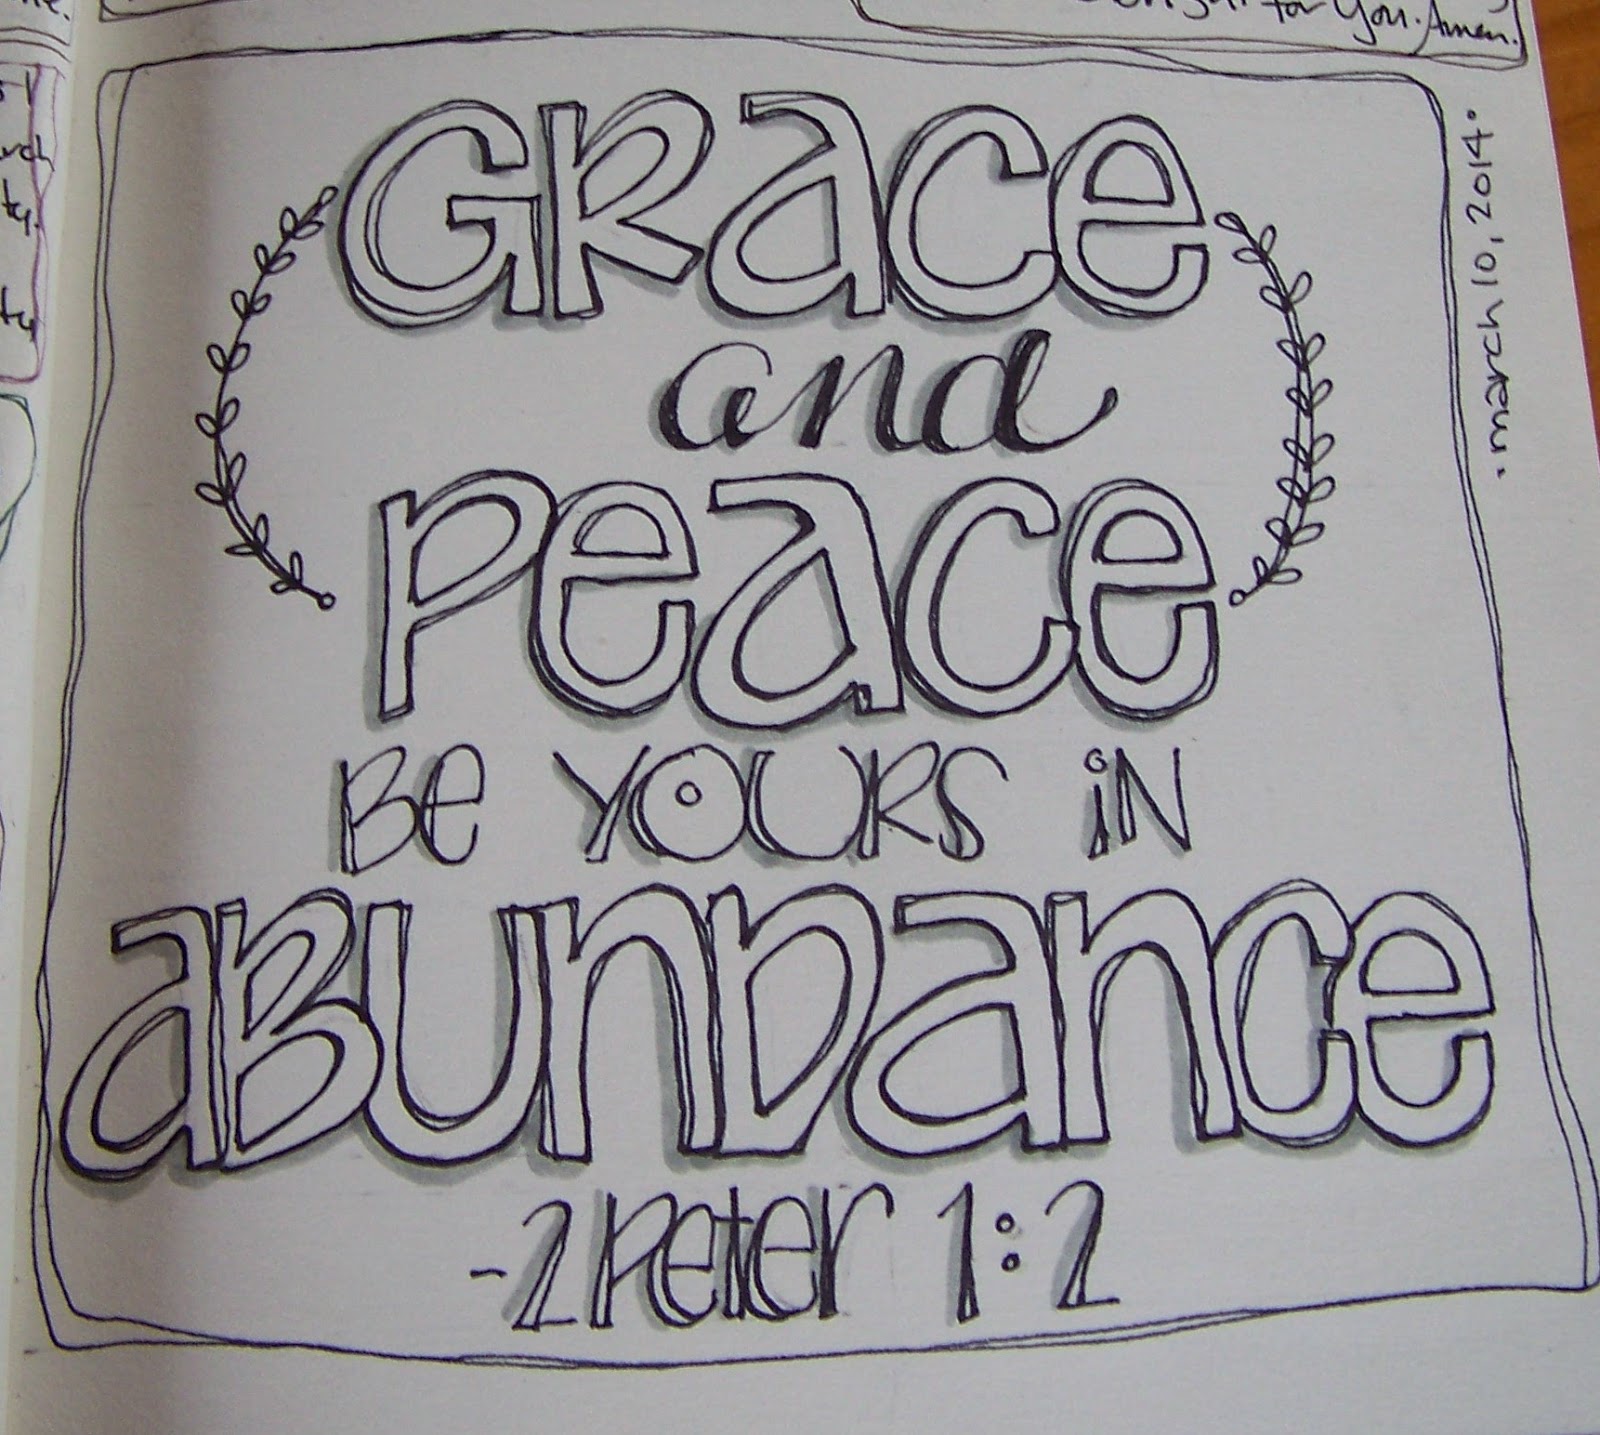 for You. Amen.
GRace
and
Peace
Be YOURS iN
aBUnDance
-2 Peter 1:2
·march 10, 2014·